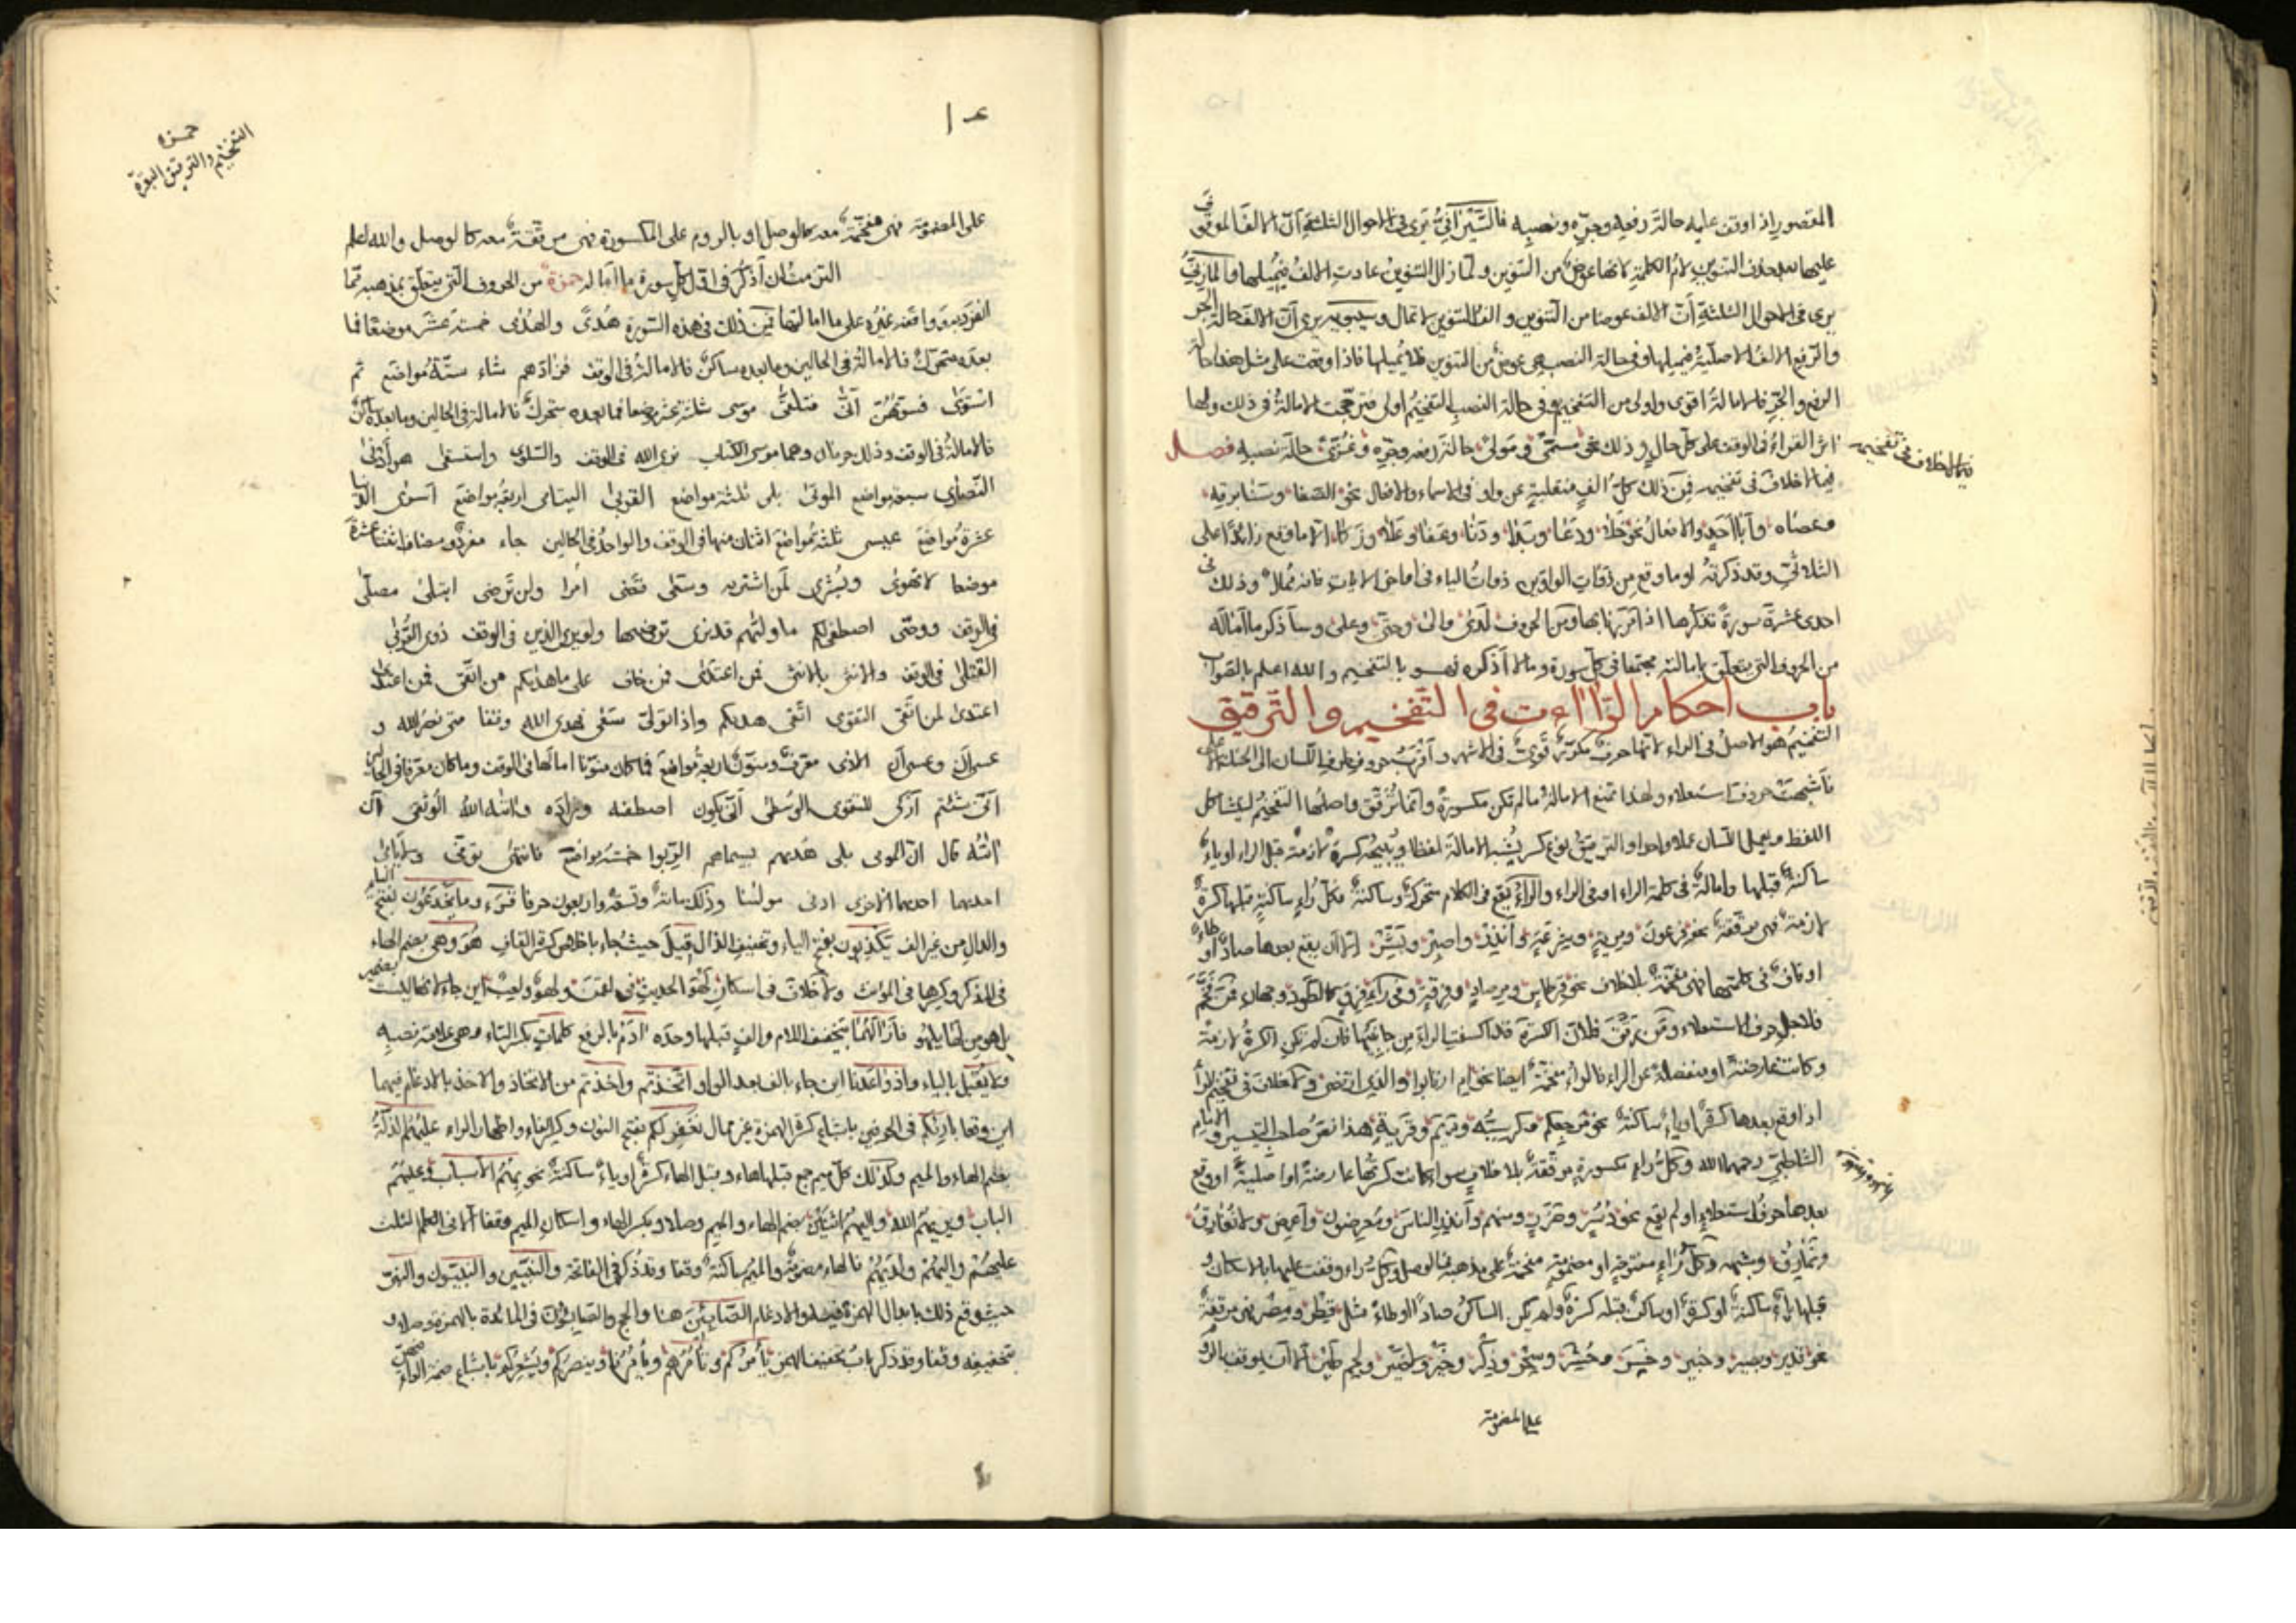 المقصور اذا وقف عليه حالة رفعه وجرّه ونصبه فالسّيرافيّ يرى في الاحوال الثلثة انّ الالف الموقف
عليها بعد حذف التنوين لام الكلمة لانها عوض من التنوين ولمّا زال التنوين عادت الالف فيميلها والمازنيّ
يرى في الاحوال الثلثة أنّ الالف عوضا من التنوين والف التنوين لا تمال وسيبويه يرى أنّ الالف حالة الجر
والرفع الالف الاصلية فيميلها وفي حالة النصب هي عوض من التنوين فلا يميلها فاذا وقفت على مثل هذا حالة
الرفع والجرّ فالامالة اقوى واولى من التفخيم وفي حالة النصب التفخيم اولى فترجّحت الامالة في ذلك ولها
اثر القراء في الوقف على كل حال وذلك نحو مسمّى ومولى حالة رفعه وجرّه وغزّى حالة نصبه فصل
فيما لا خلاف في تفخيمه
فيما لا خلاف في تفخيمه فمن ذلك كلّ الف منقلبة عن واو في الاسماء والافعال نحو الصفا وسنا برقه
وعصاه وأبا أحد والافعال نحو خلا ودعا وبدا ودنا وعفا وعلا وزكا الا ما وقع زائدا على
الثلاثيّ وقد ذكرته او ما وقع من ذوات الواو بين ذوات الياء في اواخر الايات فانه ممال وذلك في
احدى عشرة سورة نذكرها اذا مررنا بها ومن الحروف لدى والى وحتى وعلى وسأذكر ما أماله
من الحروف التي يتعلق بامالته مجتمعا في كل سورة وما لا أذكره فهو بالتفخيم والله اعلم بالصواب
باب احكام الرّاءات في التفخيم والترقيق
التفخيم هو الاصل في الراء لانها حرف مكرّر قويّ في الاشهر وأقرب حروف طرف اللسان الى الحنك الاعلى
فأشبهت حروف استعلاء ولهذا تمنع الامالة ما لم تكن مكسورة وانما ترقق واصلها التفخيم ليتشاكل
اللفظ ويعمل اللسان عملا واحدا والترقيق نوع كسر يشبه الامالة لفظا ويتبيحه كسرة لازمة قبل الراء او ياء
ساكنة قبلها وامالة في كلمة الراء او في الراء والراء يقع في الكلام متحركة وساكنة فكل راء ساكنة قبلها كسرة
لازمة فهي مرققة نحو فرعون ومرية وشرعة وأنذر واصبر ويبشّر الا أن يقع بعدها صاد او طاء
او قاف في كلمتها فهي مفخمة بلا خلاف نحو قرطاس ومرصاد وفرقة وفي راء فرق كالطود وجهان فمن فخّم
فلاجل حرف الاستعلاء ومن رقّق فلأن الكسرة قد اكتنفت الراء من جانبيها فان لم تكن الكسرة لازمة
وكانت عارضة او منفصلة عن الراء فالراء مفخمة ايضا نحو ام ارتابوا والذي ارتضى ولا خلاف في تفخيم الراء
اذا وقع بعدها كسرة او ياء ساكنة نحو مرجعكم وكرسيّه ومريم وقرية هذا نصّ صاحب التيسير والامام
الشاطبيّ رحمهما الله وكل راء مكسورة مرققة بلا خلاف سواء كانت كسرتها عارضة او اصلية او وقع
بعدها حرف استعلاء او لم يقع نحو دسر وضرب ومنهم وأنذر الناس ومعرضون وأعرض ولا تفارق
وتمارق وشبهه وكل راء مفتوحة او مضمومة مفخمة على مذهبه في الوصل وكل راء وقفت عليها بالاسكان و
قبلها ياء ساكنة او كسرة او ساكن قبله كسرة ولم يكن الساكن صادا او طاء مثل قطر ومصر فهي مرققة
نحو نذير وبصير وخبير وخسر وحشر وسحر وذكر وخير ولا ضير ولحم طير الا ان يوقف بالروم
على المضمومة
١٠٤
حمزه
التفخيم والترقيق البقرة
على المضمومة فهي مفخمة معه كالوصل او بالروم على المكسورة فهي مرققة معه كالوصل والله اعلم
التزمت ان أذكر في اوّل كل سورة ما اماله حمزة من الحروف التي يتعلق بمذهبه ممّا
انفرد به ووافقه غيره على ما امالتها فمن ذلك في هذه السورة هدى والهدى خمسة عشر موضعا فما
بعده متحرك فالامالة في الحالين وما بعده ساكن فالامالة في الوقف فزادهم شاء ستة مواضع ثم
استوى فسوّٰهن أبى فتلقّى موسى ثلثة عشر موضعا فما بعده متحرك فالامالة في الحالين وما بعده ساكن
فالامالة في الوقف وذلك حرفان وهما موسى الكتاب نرى الله في الوقف والسلوى واستسقى هو أدنى
النصارى سبعة مواضع الموتى بلى ثلثة مواضع القربى اليتامى اربعة مواضع اسرى الدّنيا
عشرة مواضع عيسى ثلثة مواضع اثنان منها في الوقف والواحد في الحالين جاء مفردا ومضافا اثنتا عشرة
موضعا لا تهوى وبشرى لمن اشتريه وسعى قضى امرا ولن ترضى ابتلى مصلّى
في الوقف ووصّى اصطفى لكم ما ولّٰهم قد نرى ترضٰها ولو يرى الذين في الوقف ذوى القربى
القتلى في الوقف والانثى بالانثى فمن اعتدى فمن خاف على ما هديكم من اتقى فمن اعتدى
اعتدى لمن اتقى التقوى اتقى هديكم واذا تولّى سعى فهدى الله وقفا متى نصر الله و
عسى أن وعسى أن الاذى معرّف ومنوّن اربعة مواضع فما كان منوّنا امالها في الوقف وما كان معرّفا في الحالين
أنى شئتم أزكى للتقوى الوسطى أنّى يكون اصطفٰه وزاده وءاتٰه الله الوثقى أن
ءاتٰه قال انى الموتى بلى هديهم بسيماهم الربوا خمسة مواضع فانتهى توفّى
احديهما احديهما الاخرى ادنى مولٰنا وذلك مائة وتسعة واربعون حرفا قرء وما يخدعون بفتح الياء
والدال من غير الف يكذبون بفتح الياء وتخفيف الذال قيل حيث جاء باخلاص كسرة القاف هو وهي بضم الهاء
في المذكر وكسرها في المؤنث ولا خلاف في اسكان لهو الحديث ولهو ولعب اين جاء لانها ليست بضمير
بل هو من لها يلهو فأزلّهما بتخفيف اللام والف قبلها وحده ءادم بالرفع كلمات بكسر التاء وهي علامة نصبه
ولا يقبل بالياء واذ واعدنا اين جاء بالف بعد الواو اتخذتم واخذتم من الاتخاذ والاخذ بالادغام فيهما
اين وقعا بارئكم في الحرفين باشباع كسرة الهمزة غير ممال نغفر لكم بفتح النون وكسر الفاء واظهار الراء عليهم الذلّة
بضم الهاء والميم وكذلك كل ميم جمع قبلها هاء وقبل الهاء كسرة او ياء ساكنة نحو بهم الاسباب وعليهم
الباب ويريهم الله واليهم اثنين بضم الهاء والميم وصلا وبكسر الهاء واسكان الميم وقفا الا في الكلم الثلث
عليهم واليهم ولديهم فالهاء مضمومة والميم ساكنة وقفا وقد ذكر في الفاتحة والنبيّين والنبيّون والنبىّ
حيث وقع ذلك بابدال الهمزة فيه والادغام الصابئين هنا والحج والصابئون في المائدة بالهمزة وصلا و
بتخفيفه وقفا وقد ذكر باب تخفيف الهمز يأمركم وتأمرهم ويأمرنا وينصركم ويشعركم باشباع ضمة الراء